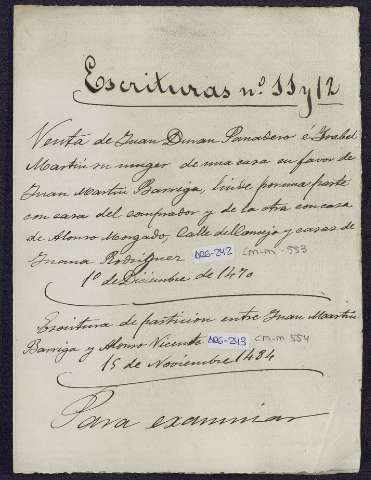 Escrituras nº 11 y 12
Venta de Juan Duran Panadero é Ysabel
Martin su muger de una casa en favor de
Juan Martin Barriga, linde por una parte
con casa del comprador y de la otra con casa
de Alonso Morgado, Calle del Concejo y casas de
Juana Rodriguez ARG-242 CM-M-553
1º de Diciembre de 1470
Escritura de particion entre Juan Martin
Barriga y Alonso Vicente ARG-243 CM-M 554
15 de Noviembre 1484
Para examinar